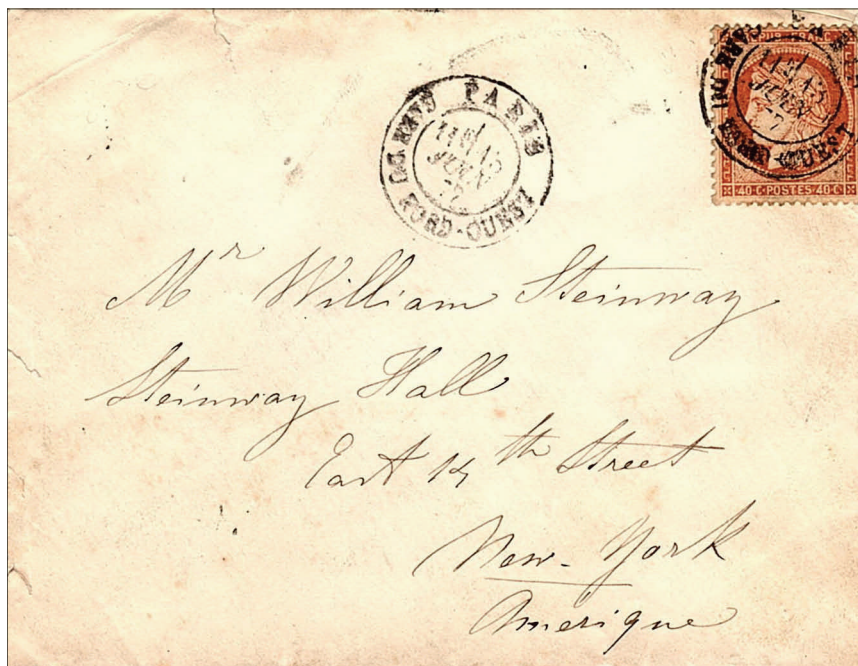 PARIS
GARE DU NORD-OUEST
JUIN
GARE DU NORD-OUEST
40·C·POSTES·40·C
Mr William Steinway
Steinway Hall
East 14th Street
New-York
Amerique